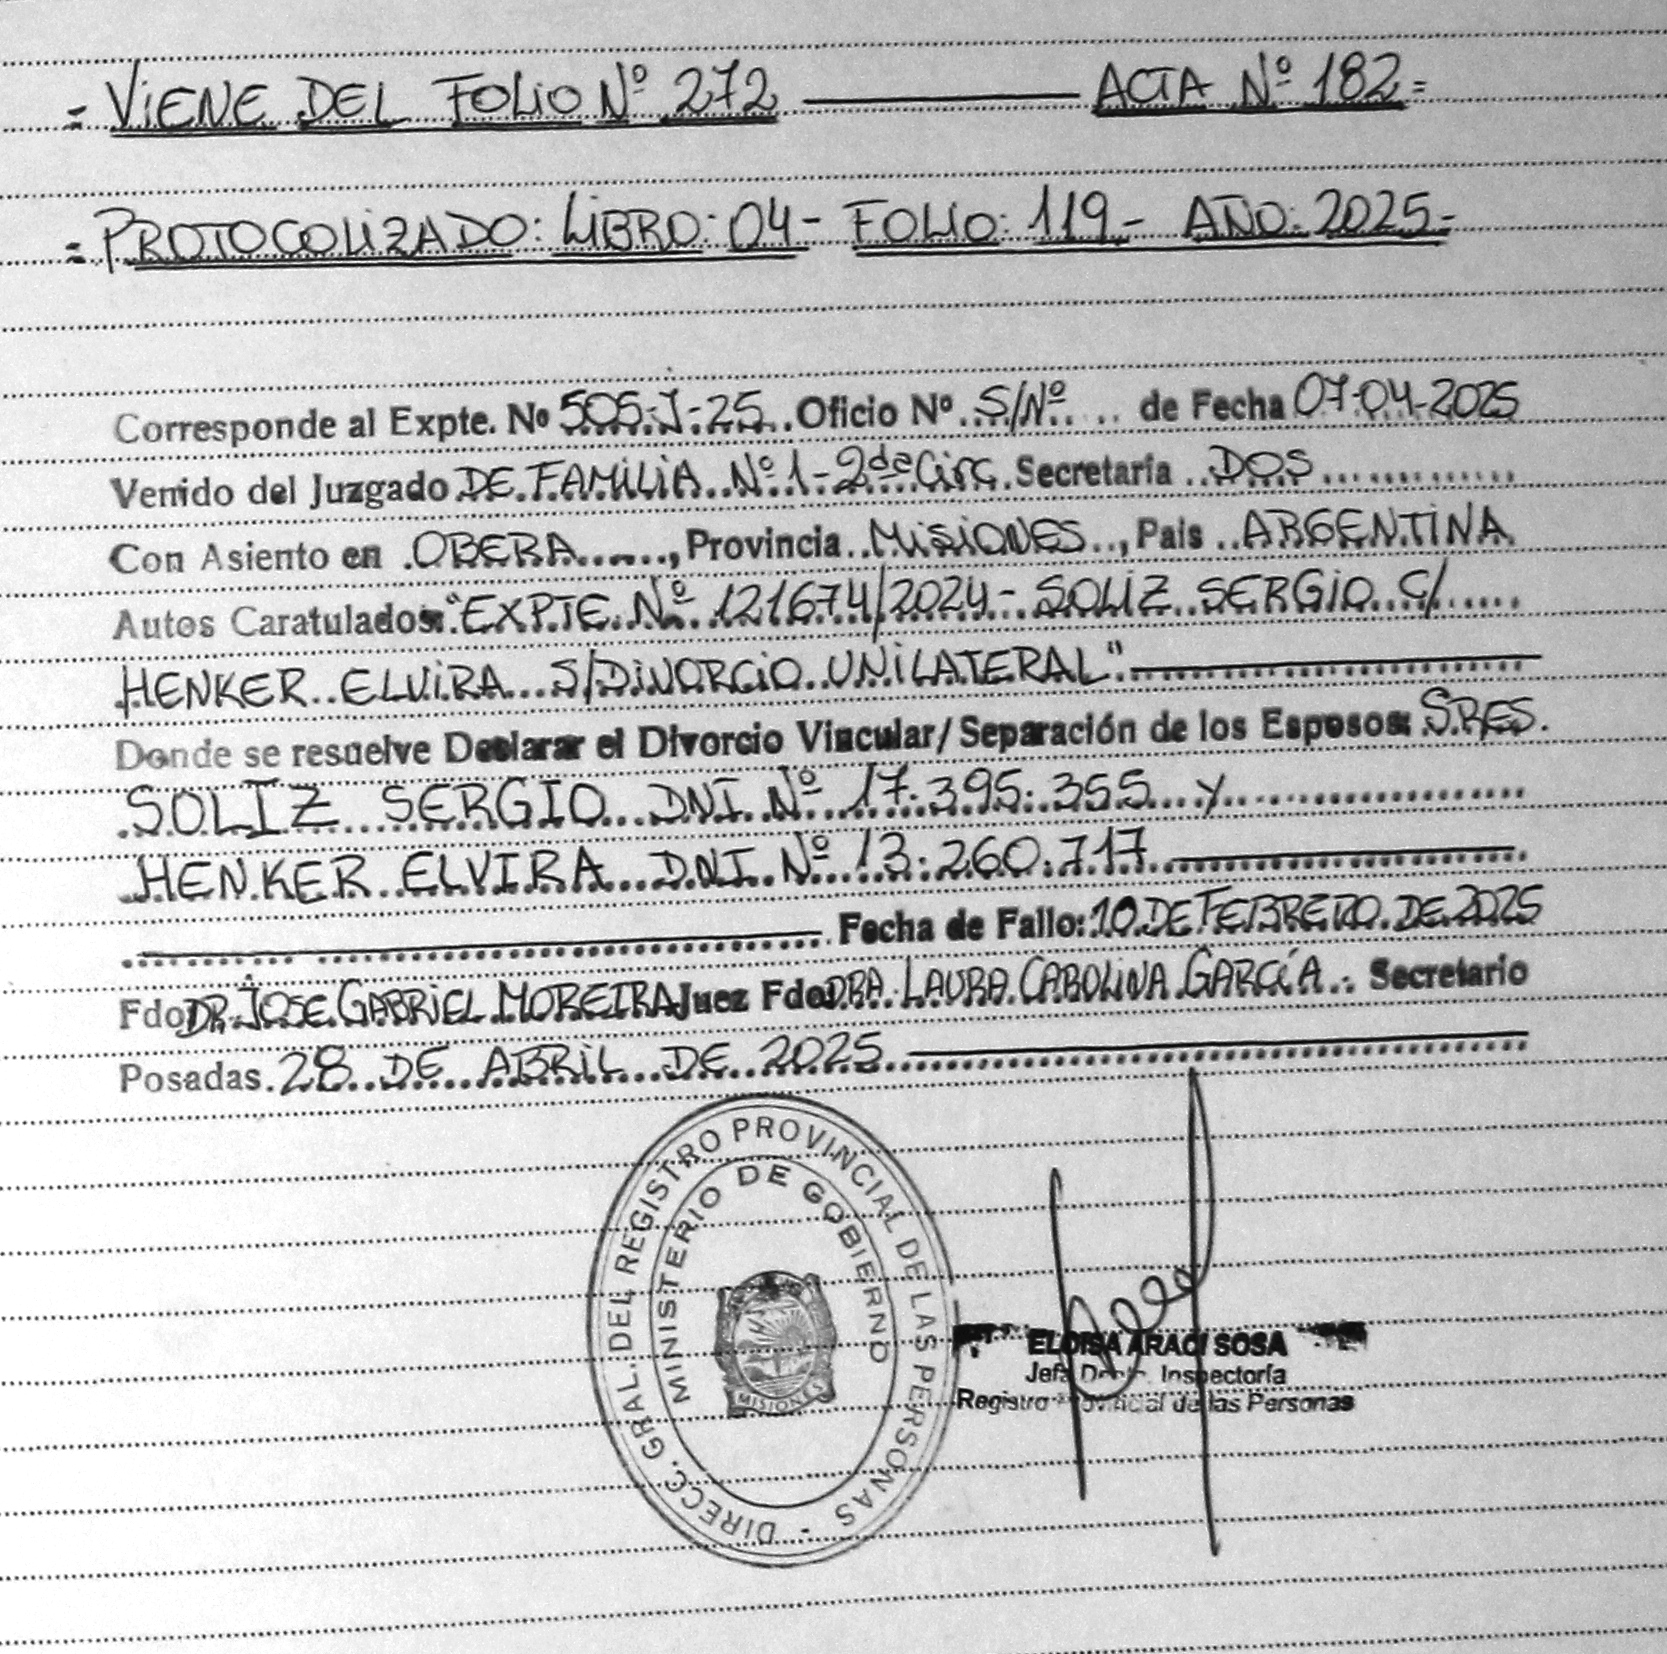 = VIENE DEL FOLIO Nº 272 ——— ACTA Nº 182 =
= PROTOCOLIZADO: LIBRO: 04 - FOLIO: 119 - AÑO: 2025 =
Corresponde al Expte. Nº 505-J-25. Oficio Nº S/Nº de Fecha 07-04-2025
Venido del Juzgado DE FAMILIA Nº 1 - 2da Circ. Secretaría DOS
Con Asiento en OBERA, Provincia MISIONES, País ARGENTINA
Autos Caratulados: "EXPTE. Nº 121674/2024 - SOLIZ SERGIO C/
HENKER ELVIRA S/DIVORCIO UNILATERAL"
Donde se resuelve Declarar el Divorcio Vincular/Separación de los Esposos: SRES.
SOLIZ SERGIO DNI Nº 17.395.355 y
HENKER ELVIRA DNI Nº 13.260.717
Fecha de Fallo: 10 DE FEBRERO DE 2025
Fdo DR. JOSE GABRIEL MOREIRA Juez Fdo DRA. LAURA CAROLINA GARCÍA. Secretario
Posadas 28 DE ABRIL DE 2025
DIRECC. GRAL. DEL REGISTRO PROVINCIAL DE LAS PERSONAS -
MINISTERIO DE GOBIERNO
MISIONES
ELOISA ARACI SOSA
Jefa Depto. Inspectoría
Registro Provincial de las Personas